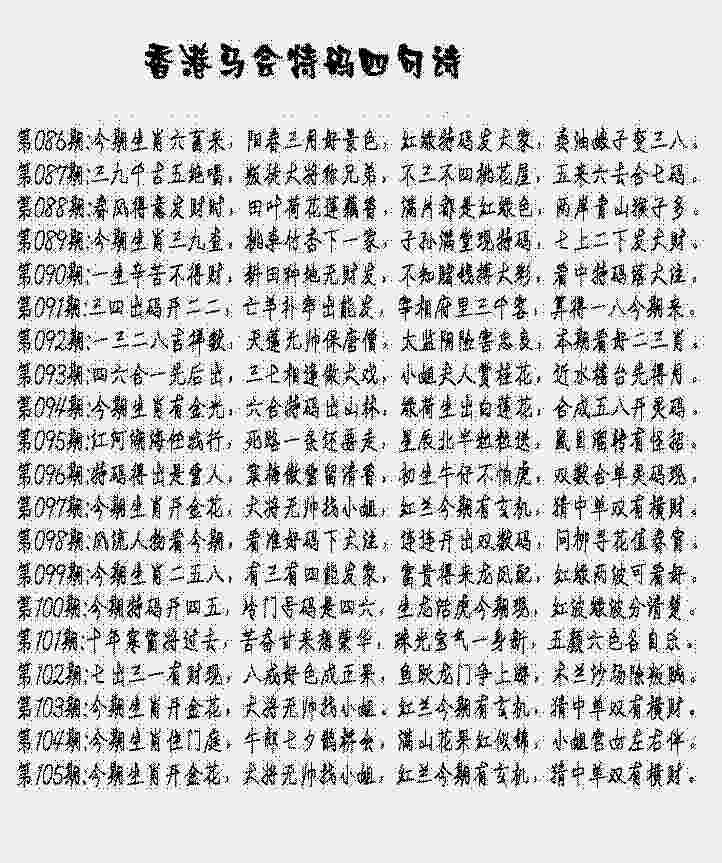 香港马会特码四句诗
第086期:今期生肖六畜来，阳春三月好景色，红绿特码发大家，卖油娘子变三八。
第087期:三九千古五绝唱，叛徒大将称兄弟，不三不四桃花屋，五来六去合七码。
第088期:春风得意发财时，田叶荷花莲藕香，满片都是红绿色，两岸青山猴子多。
第089期:今期生肖三九查，桃李付杏下一家，子孙满堂现特码，七上二下发大财。
第090期:一生辛苦不得财，耕田种地无财发，不知赌钱搏大彩，看中特码落大注。
第091期:三四出码开二二，亡羊补牢出能发，宰相府里三千客，算得一八今期来。
第092期:一三二八吉祥数，天蓬元帅保唐僧，太监阴险害忠良，本期看好二三肖。
第093期:四六合一先后出，三七相逢做大戏，小姐夫人赏桂花，近水楼台先得月。
第094期:今期生肖有金光，六合特码出山林，绿荷生出白莲花，合成五八开灵码。
第095期:江河湖海任我行，死路一条还要走，星辰北斗粒粒送，鼠目溜转有怪招。
第096期:特码得出是雪人，寒梅傲雪留清香，初生牛仔不怕虎，双数合单灵码现。
第097期:今期生肖开金花，大将无帅找小姐，红兰今期有玄机，猜中单双有横财。
第098期:风流人物看今期，看准好码下大注，连连开出双数码，问柳寻花值春宵。
第099期:今期生肖二五八，有三有四能发家，富贵得来龙凤配，红绿两波可看好。
第100期:今期特码开四五，冷门号码是四六，生龙活虎今期现，红波绿波分清楚。
第101期:十年寒窗将过去，苦尽甘来携荣华，珠光宝气一身新，五颜六色各自乐。
第102期:七出三一有财现，八戒好色成正果，鱼跃龙门争上游，木兰沙场除叛贼。
第103期:今期生肖开金花，大将无帅找小姐。红兰今期有玄机，猜中单双有横财。
第104期:今期生肖住门庭，牛郎七夕鹊桥会，满山花果红似锦，小姐宫女左右伴。
第105期:今期生肖开金花，大将无帅找小姐，红兰今期有玄机，猜中单双有横财。